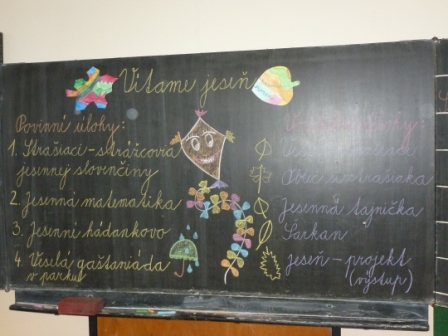 Vítame jeseň
Povinné úlohy:
1. Strašiaci - strážcovia
jesennej slovenčiny
2. Jesenná matematika
3. Jesenné hádankovo
4. Veselá gaštaniáda
v parku
úlohy
Obliec strašiaka
Jesenná tajnička
Šarkan
jeseň - projekt
(výstup)